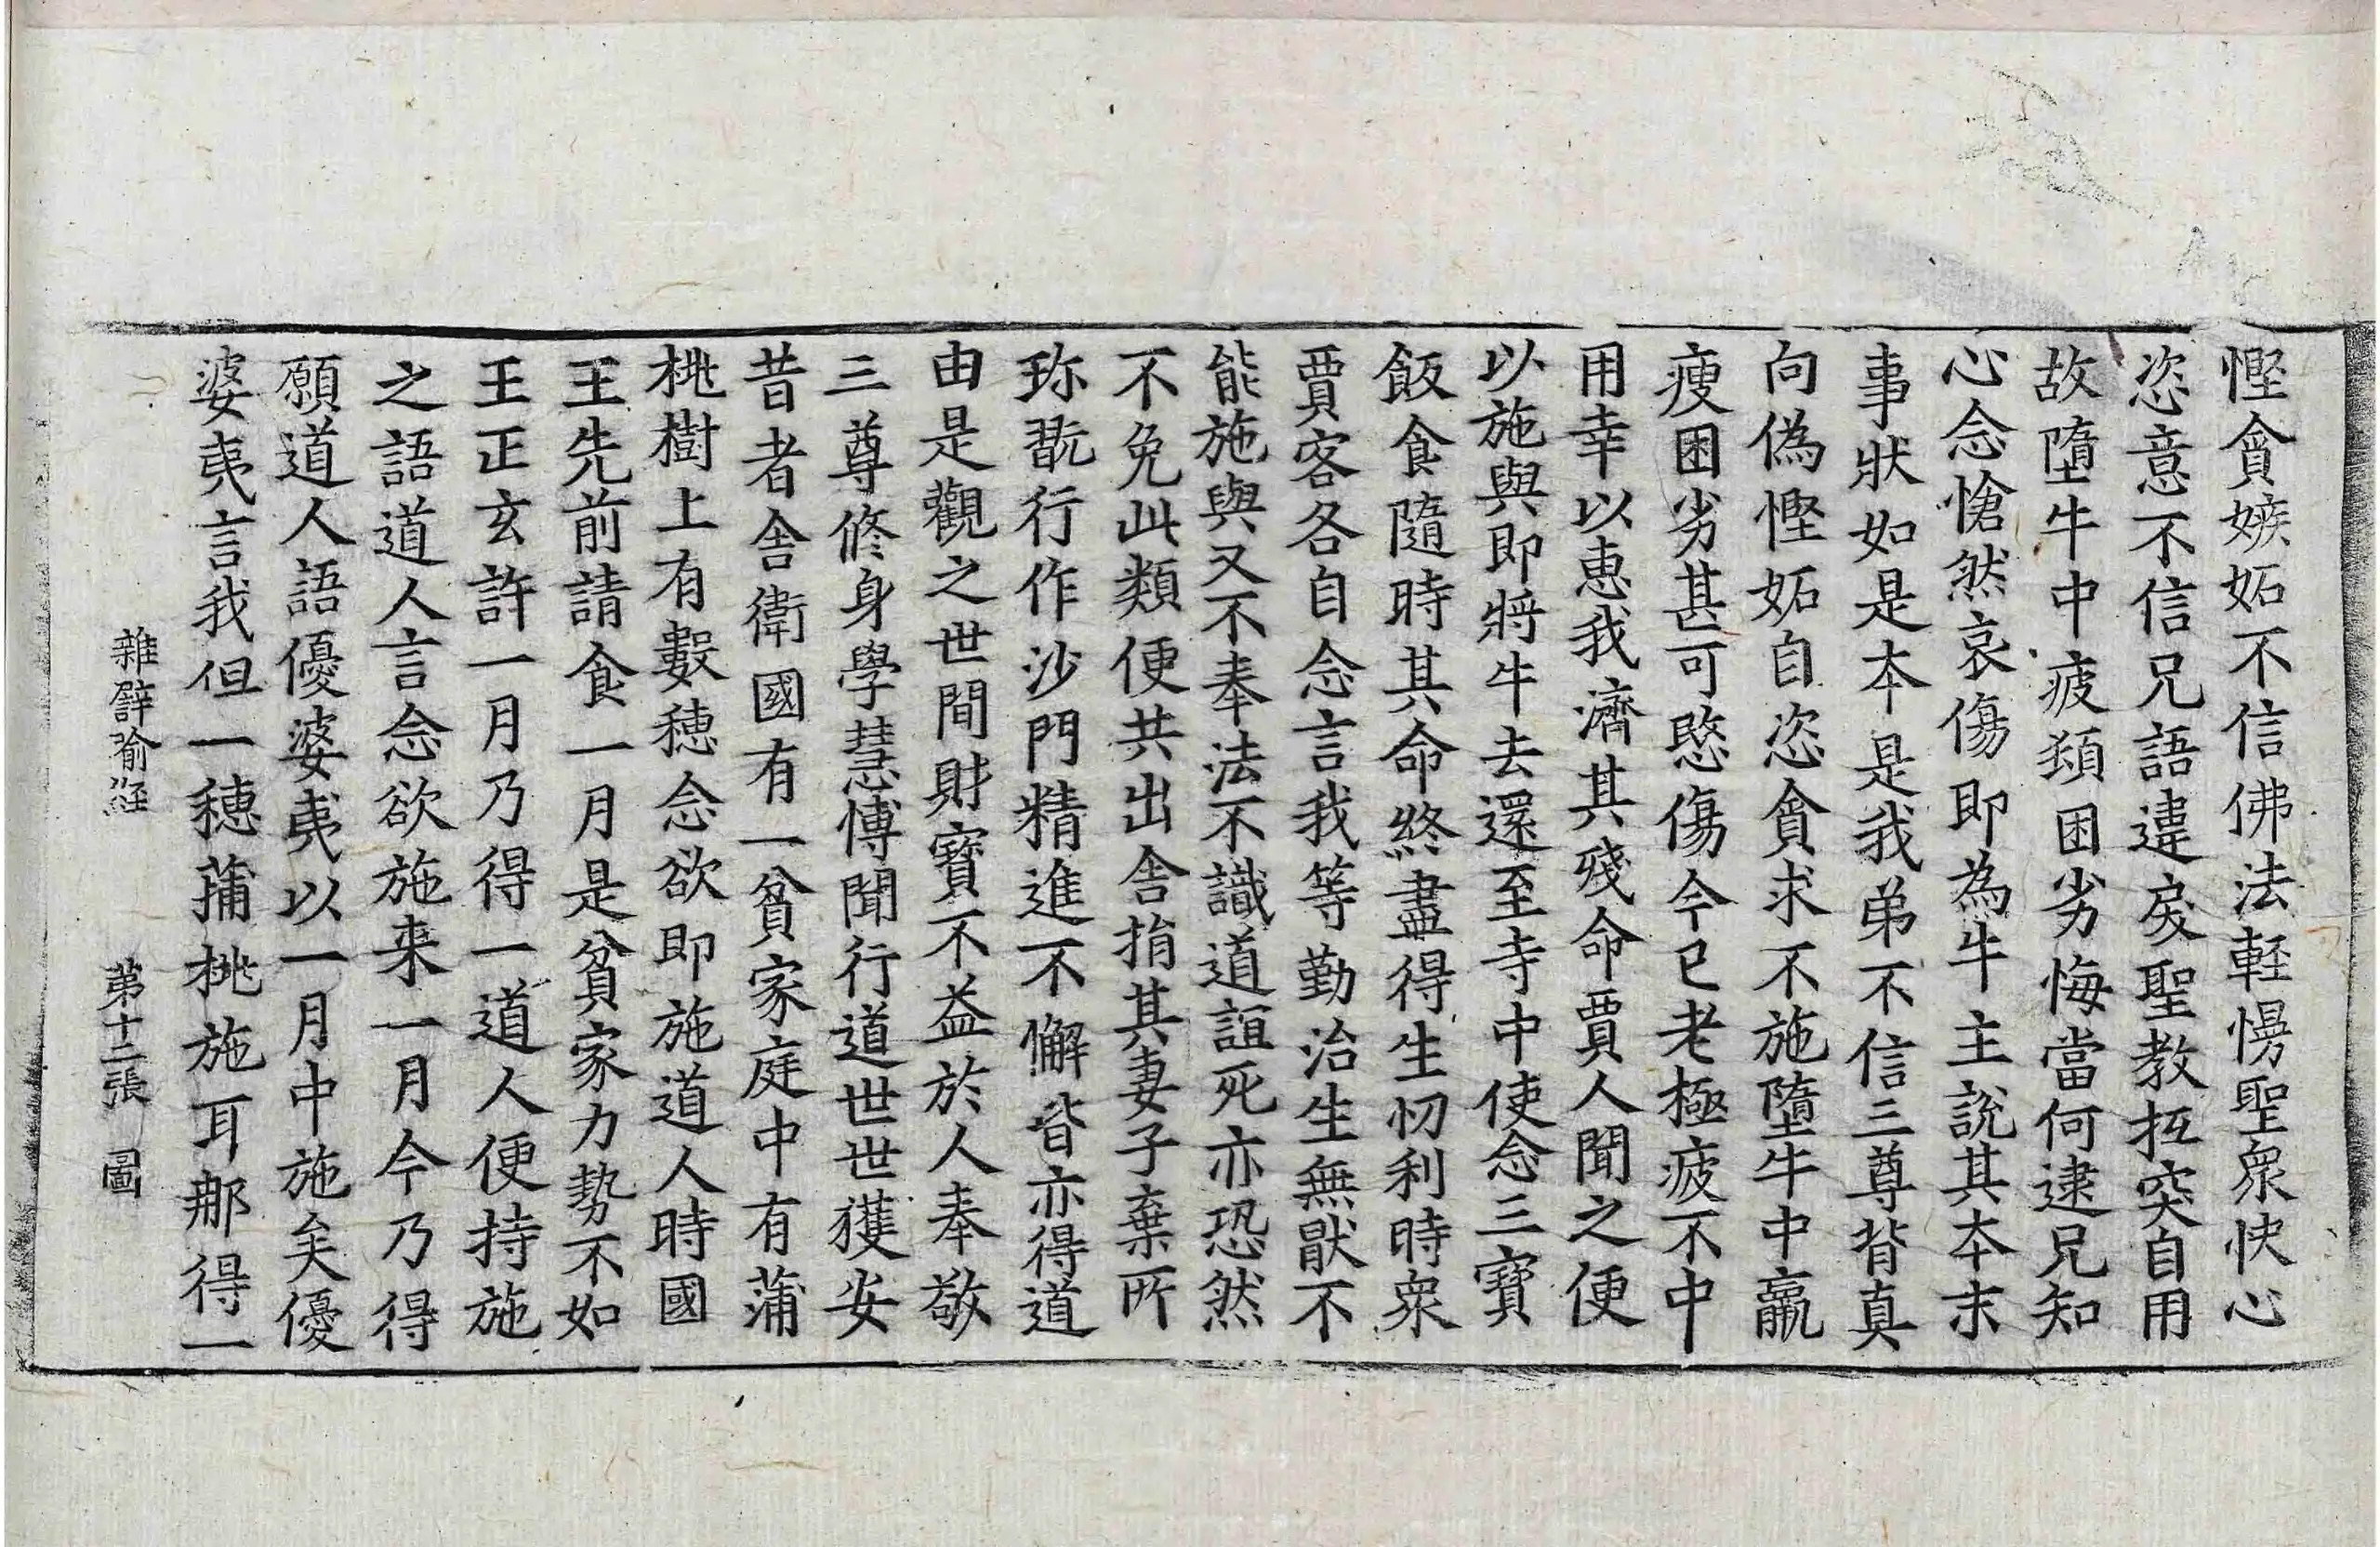 慳貪嫉妬不信佛法輕慢聖衆快心
恣意不信兄語違戾聖教抂突自用
故墮牛中疲頦困劣悔當何逮兄知
心念愴然哀傷即為牛主說其本末
事狀如是本是我弟不信三尊背真
向偽慳妬自恣貪求不施墮牛中羸
瘦困劣甚可愍傷今已老極疲不中
用幸以惠我濟其殘命賈人聞之便
以施與即將牛去還至寺中使念三寶
飯食隨時其命終盡得生忉利時衆
賈客各自念言我等勤治生無猒不
能施與又不奉法不識道誼死亦恐然
不免此類便共出舍捐其妻子棄所
珎翫行作沙門精進不懈皆亦得道
由是觀之世間財寶不益於人奉敬
三尊修身學慧博聞行道世世獲安
昔者舍衛國有一貧家庭中有蒲
桃樹上有數穗念欲即施道人時國
王先前請食一月是貧家力勢不如
王正玄許一月乃得一道人便持施
之語道人言念欲施来一月今乃得
願道人語優婆夷以一月中施矣優
婆夷言我但一穗蒲桃施耳那得一
雜譬喻経 第十二張 圖